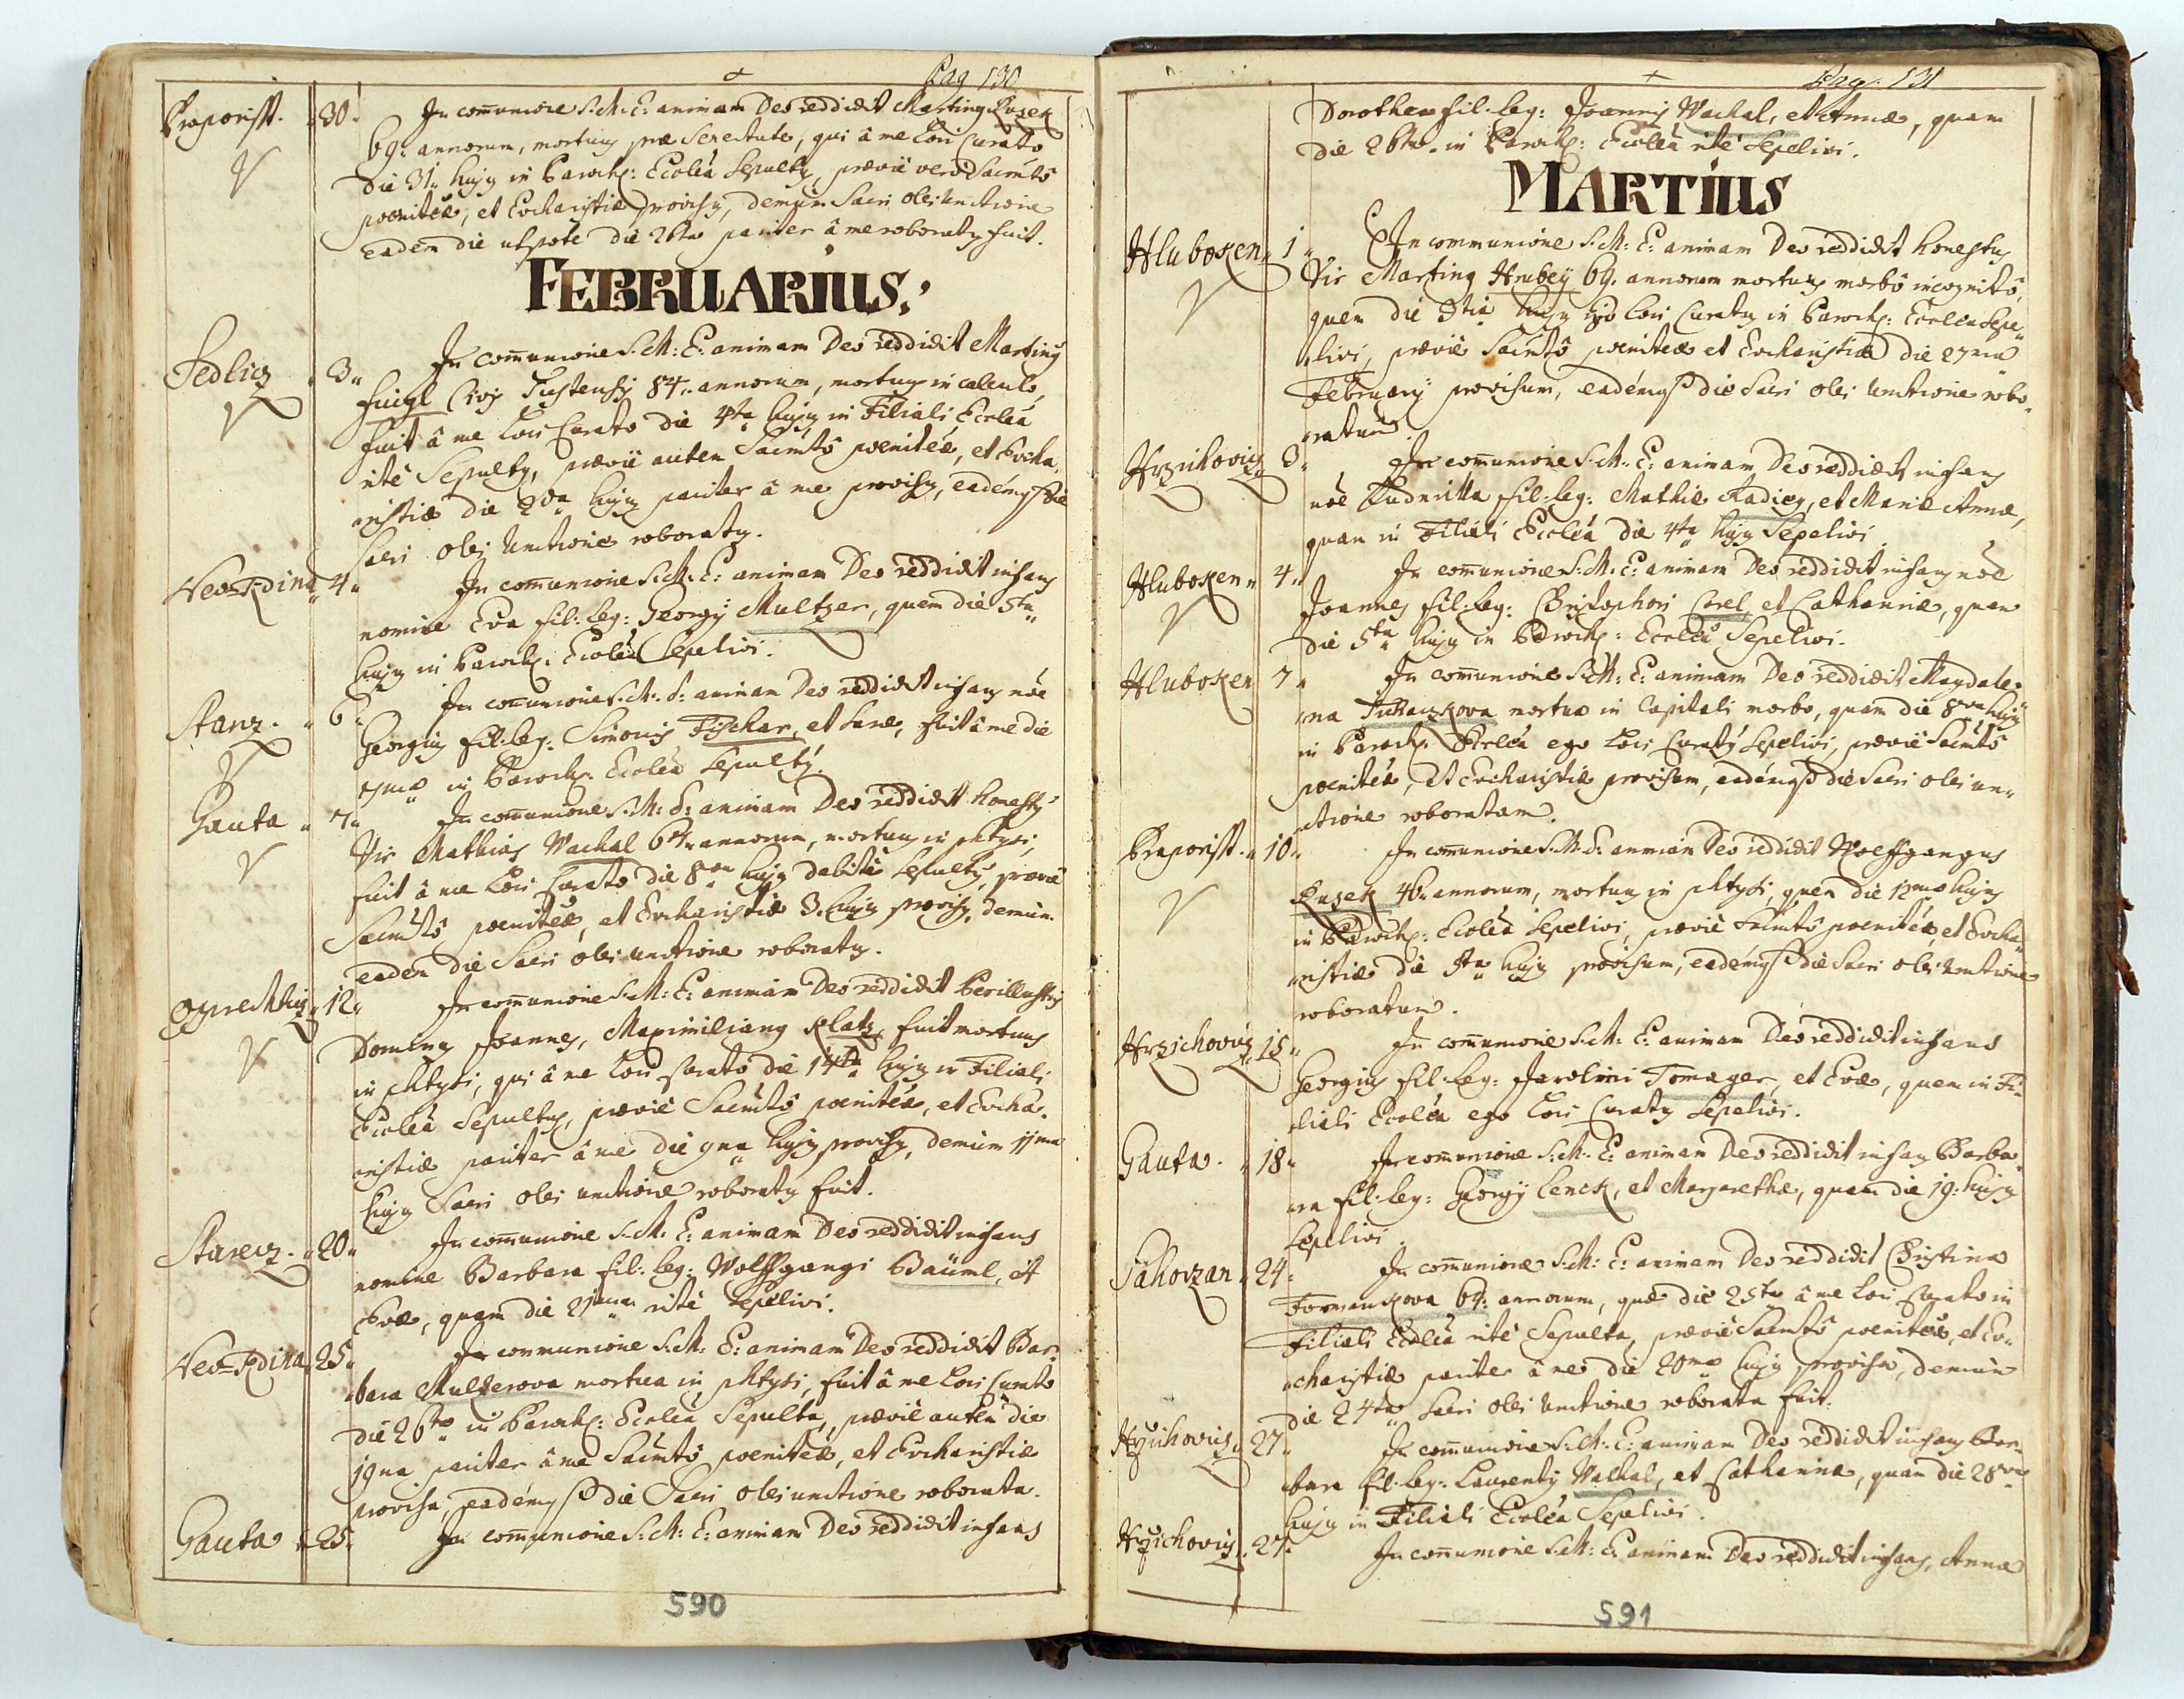 Pag 130
Praporisst. 30. In com̄unione S: M: E: animam Deo reddidit Martinȝ Kusek
69. annorum, mortuus præ Senectute, qui â me Loci Curato
die 31. hujȝ in Paroch: Ecclēa Sepultȝ, prævie vero Sacm̄to
pœnitēæ, et Eucharistiæ provisȝ, demum Sacri Olei Unctione
eadem die utpote die 26ta pariter â me roboratȝ fuit.
FEBRUARIUS.
Sedlicz 3 In com̄unione S: M: E: animam Deo reddidit Martinȝ
Civis Tustensis 84. annorum, mortuus in calculo,
fuit â me Loci Curato die 4ta hujȝ in Filiali Ecclēa
rite Sepultȝ, prævie autem Sacm̄to pœnitēæ, et Eucha-
ristiæ die 2da hujȝ pariter â me provisȝ, eadémqȝ die
Sacri Olei Unctione roboratȝ.
Neo-Kdina 4 In com̄unione S: M: E: animam Deo reddidit infans
nomine Eva fil: leg: Georgij Multzer, quem die 5ta
hujȝ in Paroch: Ecclēa Sepelivi.
Stanz. 6 In com̄unione S: M: E: animam Deo reddidit infans nōe
Georgius fil: leg: Simonis Fischer, et Evæ, fuit â me die
7mâ in Paroch: Ecclēa Sepultȝ.
Gauta 7 In com̄unione S: M: E: animam Deo reddidit honestȝ
Vir Mathias Wachal 64. annorum, mortuus in phtysi,
fuit â me Loci Curato die 8va hujȝ debite Sepultȝ, prævie
Sacm̄to pœnitēæ, et Eucharistiæ 3. hujȝ provisȝ, demum
eadem die Sacri Olei Unctione roboratȝ.
Oprechtiz 12 In com̄unione S: M: E: animam Deo reddidit Perillustris
Dominȝ Joannes, Maximilianȝ Platz, fuit mortuus
in phtysi, qui â me Loci Curato die 14ta hujȝ in Filiali
Ecclēa Sepultȝ, prævie Sacm̄to pœnitēæ, et Eucha-
ristiæ pariter â me die 9na hujȝ provisȝ, demum 11ma
hujȝ Sacri Olei Unctione roboratȝ fuit.
Starecz. 20 In com̄unione S: M: E: animam Deo reddidit infans
nomine Barbara fil: leg: Wolffgangi Baüml, et
Evæ, quam die 21ma rite Sepelivi.
Neo-Kdina 25 In communione S: M: E: animam Deo reddidit Bar-
bara Multzerova mortua in phtysi, fuit â me Loci Curato
die 26ta in Paroch: Ecclēa Sepulta, prævie autem die
19na pariter â me Sacm̄to pœnitēæ, et Eucharistiæ
provisa, eadémqȝ die Sacri Olei unctione roborata.
Gauta 25 In com̄unione S: M: E: animam Deo reddidit infans
590
Pag: 131
Dorothea fil: leg: Joannis Wachal, et Annæ, quam
die 26ta in Paroch: Ecclēa rite Sepelivi.
MARTIUS
Hluboken 1 In communione S: M: E: animam Deo reddidit honestȝ
Vir Martinȝ Hrubÿ 69. annorum mortuus morbo incognito,
quem die 3tia hujȝ ego Loci Curatȝ in Paroch: Ecclēa Sepe-
livi, prævie Sacm̄to pœnitēæ et Eucharistiæ die 27ma
Februarij provisum, eadémqȝ die Sacri Olei Unctione robo-
ratum.
Hrzichovicz 3 In com̄unione S: M: E: animam Deo reddidit infans
nōe Ludmilla fil: leg: Mathiæ Radicz, et Mariæ Annæ,
quam in Filiali Ecclēa die 4ta hujȝ Sepelivi
Hluboken 4 In com̄unione S: M: E: animam Deo reddidit infans nōe
Joannes fil: leg: Christophori Corel, et Catharinæ, quem
die 5ta hujȝ in Paroch: Ecclēa Sepelivi.
Hluboken 7 In com̄unione S: M: E: animam Deo reddidit Magdale-
na mortua in Capitali morbo, quam die 8va hujȝ
in Paroch: Ecclēa ego Loci Curatȝ Sepelivi, prævie Sacm̄to
pœnitēæ, et Eucharistiæ provisam, eadémqȝ die Sacri Olei un-
ctione roboratam.
Praporisst. 10 In com̄unione S: M: E: animam Deo reddidit Wolffgangus
Kusek 46. annorum, mortuus in phtysi, quem die 12ma hujȝ
in Paroch: Ecclēa Sepelivi, prævie Sacm̄to pœnitēæ, et Eucha-
ristiæ die 5ta hujȝ provisum, eadémqȝ die Sacri Olei Unctione
roboratum.
Hrzichovicz 15 In com̄unione S: M: E: animam Deo reddidit infans
Georgius fil: leg: Jarolimi Tomayer, et Evæ, quem in Fi-
liali Ecclēa ego Loci Curatȝ Sepelivi.
Gauta. 18 In com̄unione S: M: E: animam Deo reddidit infans Barba-
ra fil: leg: Georgij Lenck, et Margarethæ, quam die 19. hujȝ
Sepelivi.
Sahorzan 24 In com̄unione S: M: E: animam Deo reddidit Christina
Formankova 64. annorum, quæ die 25ta â me Loci Curato in
Filiali Ecclēa rite Sepulta, prævie Sacm̄to pœnitēæ, et Eu-
charistiæ pariter â me die 20ma hujȝ provisa, demum
die 24ta Sacri Olei Unctione roborata fuit.
Hrzichovicz 27 In com̄unione S: M: E: animam Deo reddidit infans Bar-
bara fil: leg: Laurentij Wachal, et Catharinæ, quam die 28va
hujȝ in Filiali Ecclēa Sepelivi.
Hrzichovicz 27. In com̄unione S: M: E: animam Deo reddidit infans, Anna
591